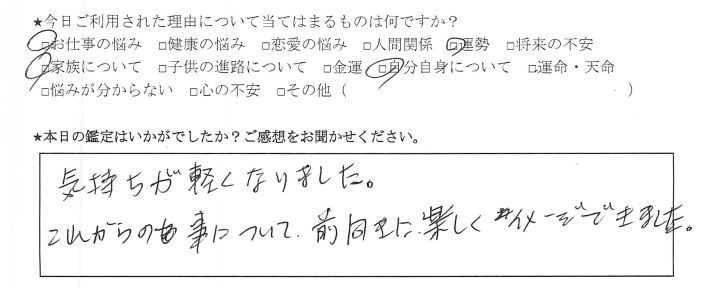 ★今日ご利用された理由について当てはまるものは何ですか？
□お仕事の悩み □健康の悩み □恋愛の悩み □人間関係 □運勢 □将来の不安
□家族について □子供の進路について □金運 □自分自身について □運命・天命
□悩みが分からない □心の不安 □その他（ ）
★本日の鑑定はいかがでしたか？ご感想をお聞かせください。
気持ちが軽くなりました。
これからの事について、前向きに、楽しくイメージできました。